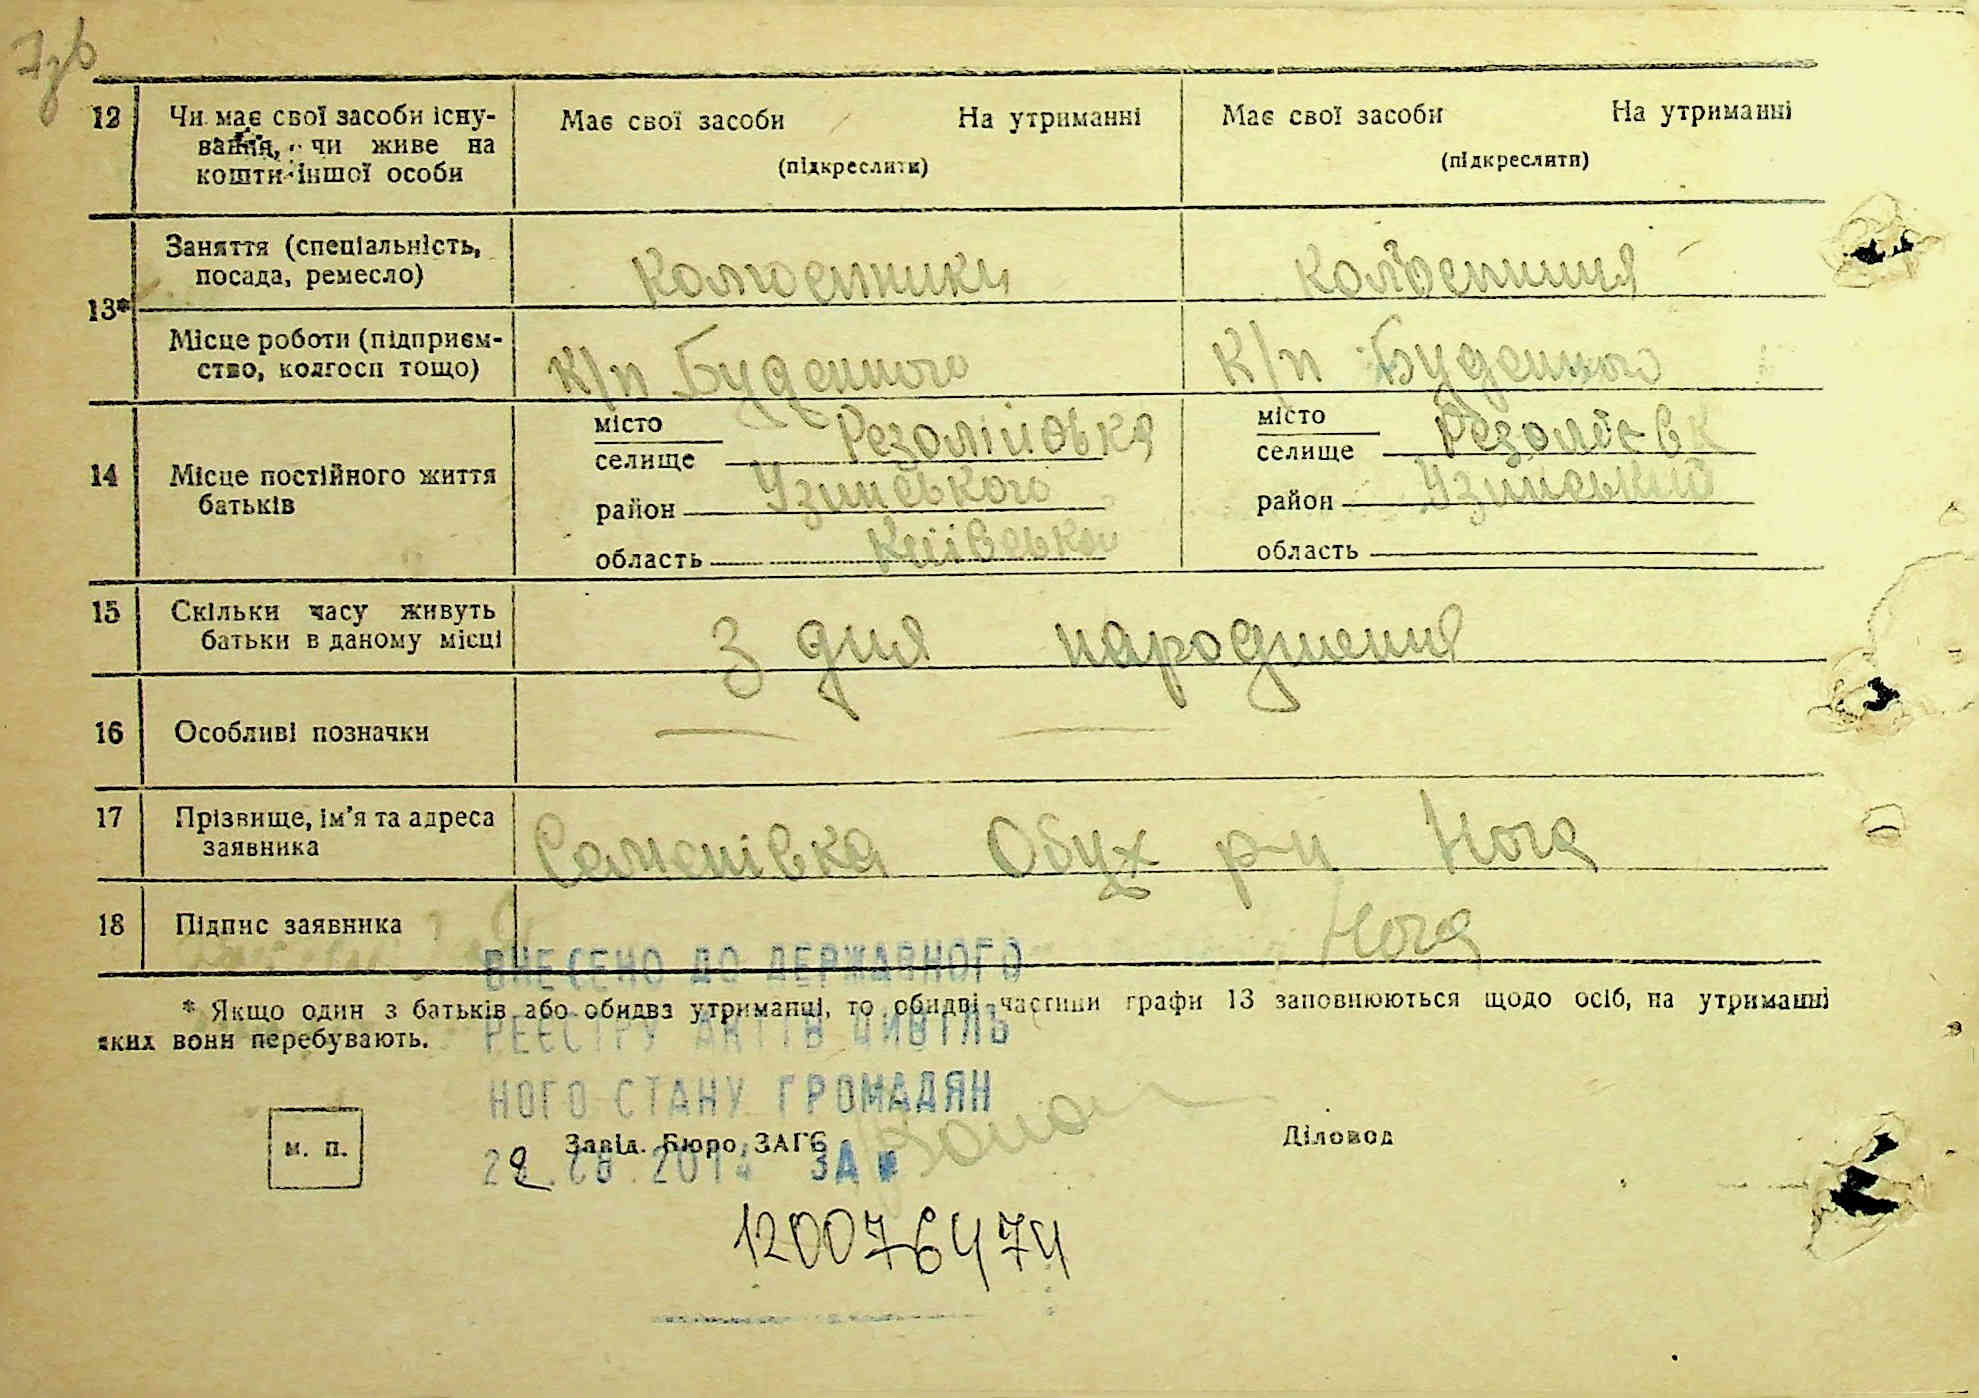 7зв
12 Чи має свої засоби існу-
вання, чи живе на
кошти іншої особи
Має свої засоби На утриманні
(підкреслити)
Має свої засоби На утриманні
(підкреслити)
13*
Заняття (спеціальність,
посада, ремесло)
колгоспники
колгоспниця
Місце роботи (підприєм-
ство, колгосп тощо)
к/п Буденного
к/п Буденного
14 Місце постійного життя
батьків
місто
селище Резолійовка
район Узинського
область Київської
місто
селище
район Узинський
область
15 Скільки часу живуть
батьки в даному місці
З дня народження
16 Особливі позначки
17 Прізвище, ім'я та адреса
заявника
Семенівка Обух р-н Нога
18 Підпис заявника
Нога
* Якщо один з батьків або обидва утриманці, то обидві частини графи 13 заповнюються щодо осіб, на утриманні
яких вони перебувають.
ВНЕСЕНО ДО ДЕРЖАВНОГО
РЕЄСТРУ АКТІВ ЦИВІЛЬ
НОГО СТАНУ ГРОМАДЯН
м. п.
Завід. Бюро ЗАГС
Діловод
ЗА №
120076474